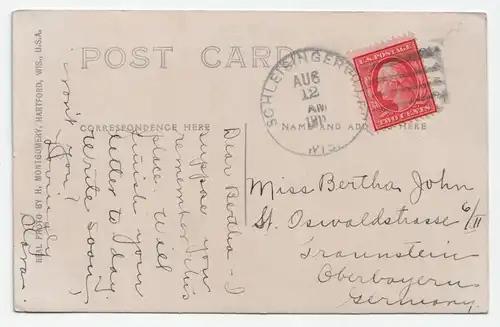 POST CARD
CORRESPONDENCE HERE
NAME AND ADDRESS HERE
REAL PHOTO BY H. MONTGOMERY, HARTFORD, WIS., U.S.A.
SCHLEISINGERVILLE
AUG
12
AM
WIS.
U.S. POSTAGE
TWO CENTS
Dear Bertha - I
suppose you
remember this
place. Will
finish your
letter to day.
Write soon,
won't you?
Lovingly
Miss Bertha John
St. Oswaldstrasse 6/II
Traunstein
Oberbayern
Germany.